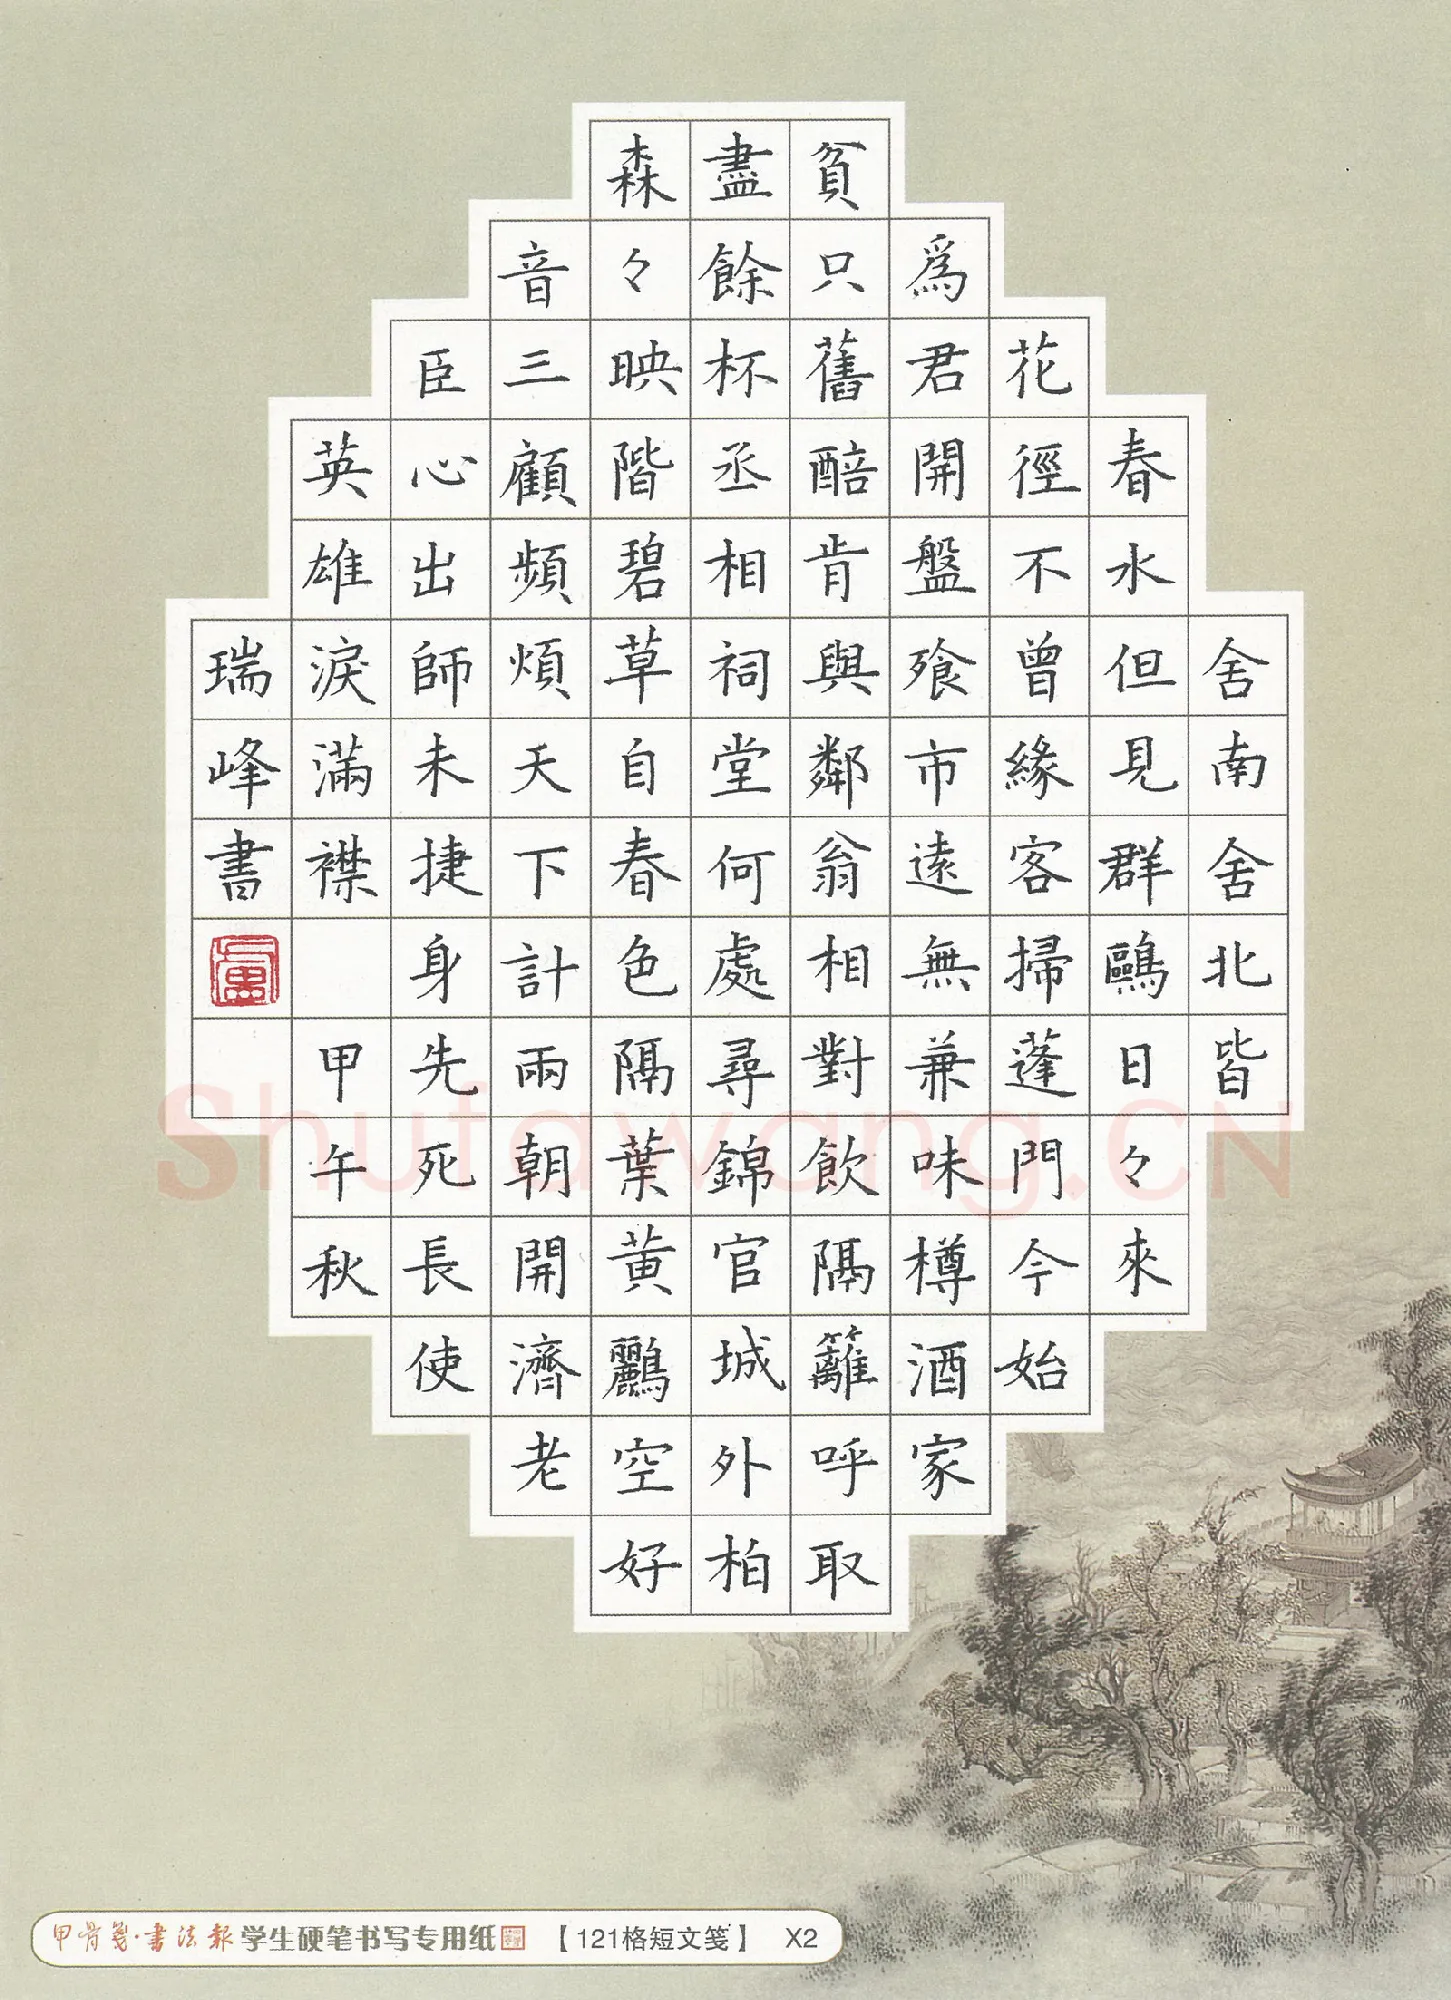 舍南舍北皆
春水但見群鷗日々來
花徑不曾緣客掃蓬門今始
爲君開盤飧市遠無兼味樽酒家
貧只舊醅肯與鄰翁相對飲隔籬呼取
盡餘杯丞相祠堂何處尋錦官城外柏
森々映階碧草自春色隔葉黃鸝空好
音三顧頻煩天下計兩朝開濟老
臣心出師未捷身先死長使
英雄淚滿襟 甲午秋
瑞峰書
Shufawang.CN
甲骨箋·書法報 学生硬笔书写专用纸 【121格短文笺】 X2